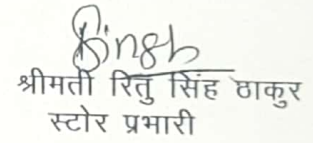 Singh
श्रीमती रितु सिंह ठाकुर
स्टोर प्रभारी